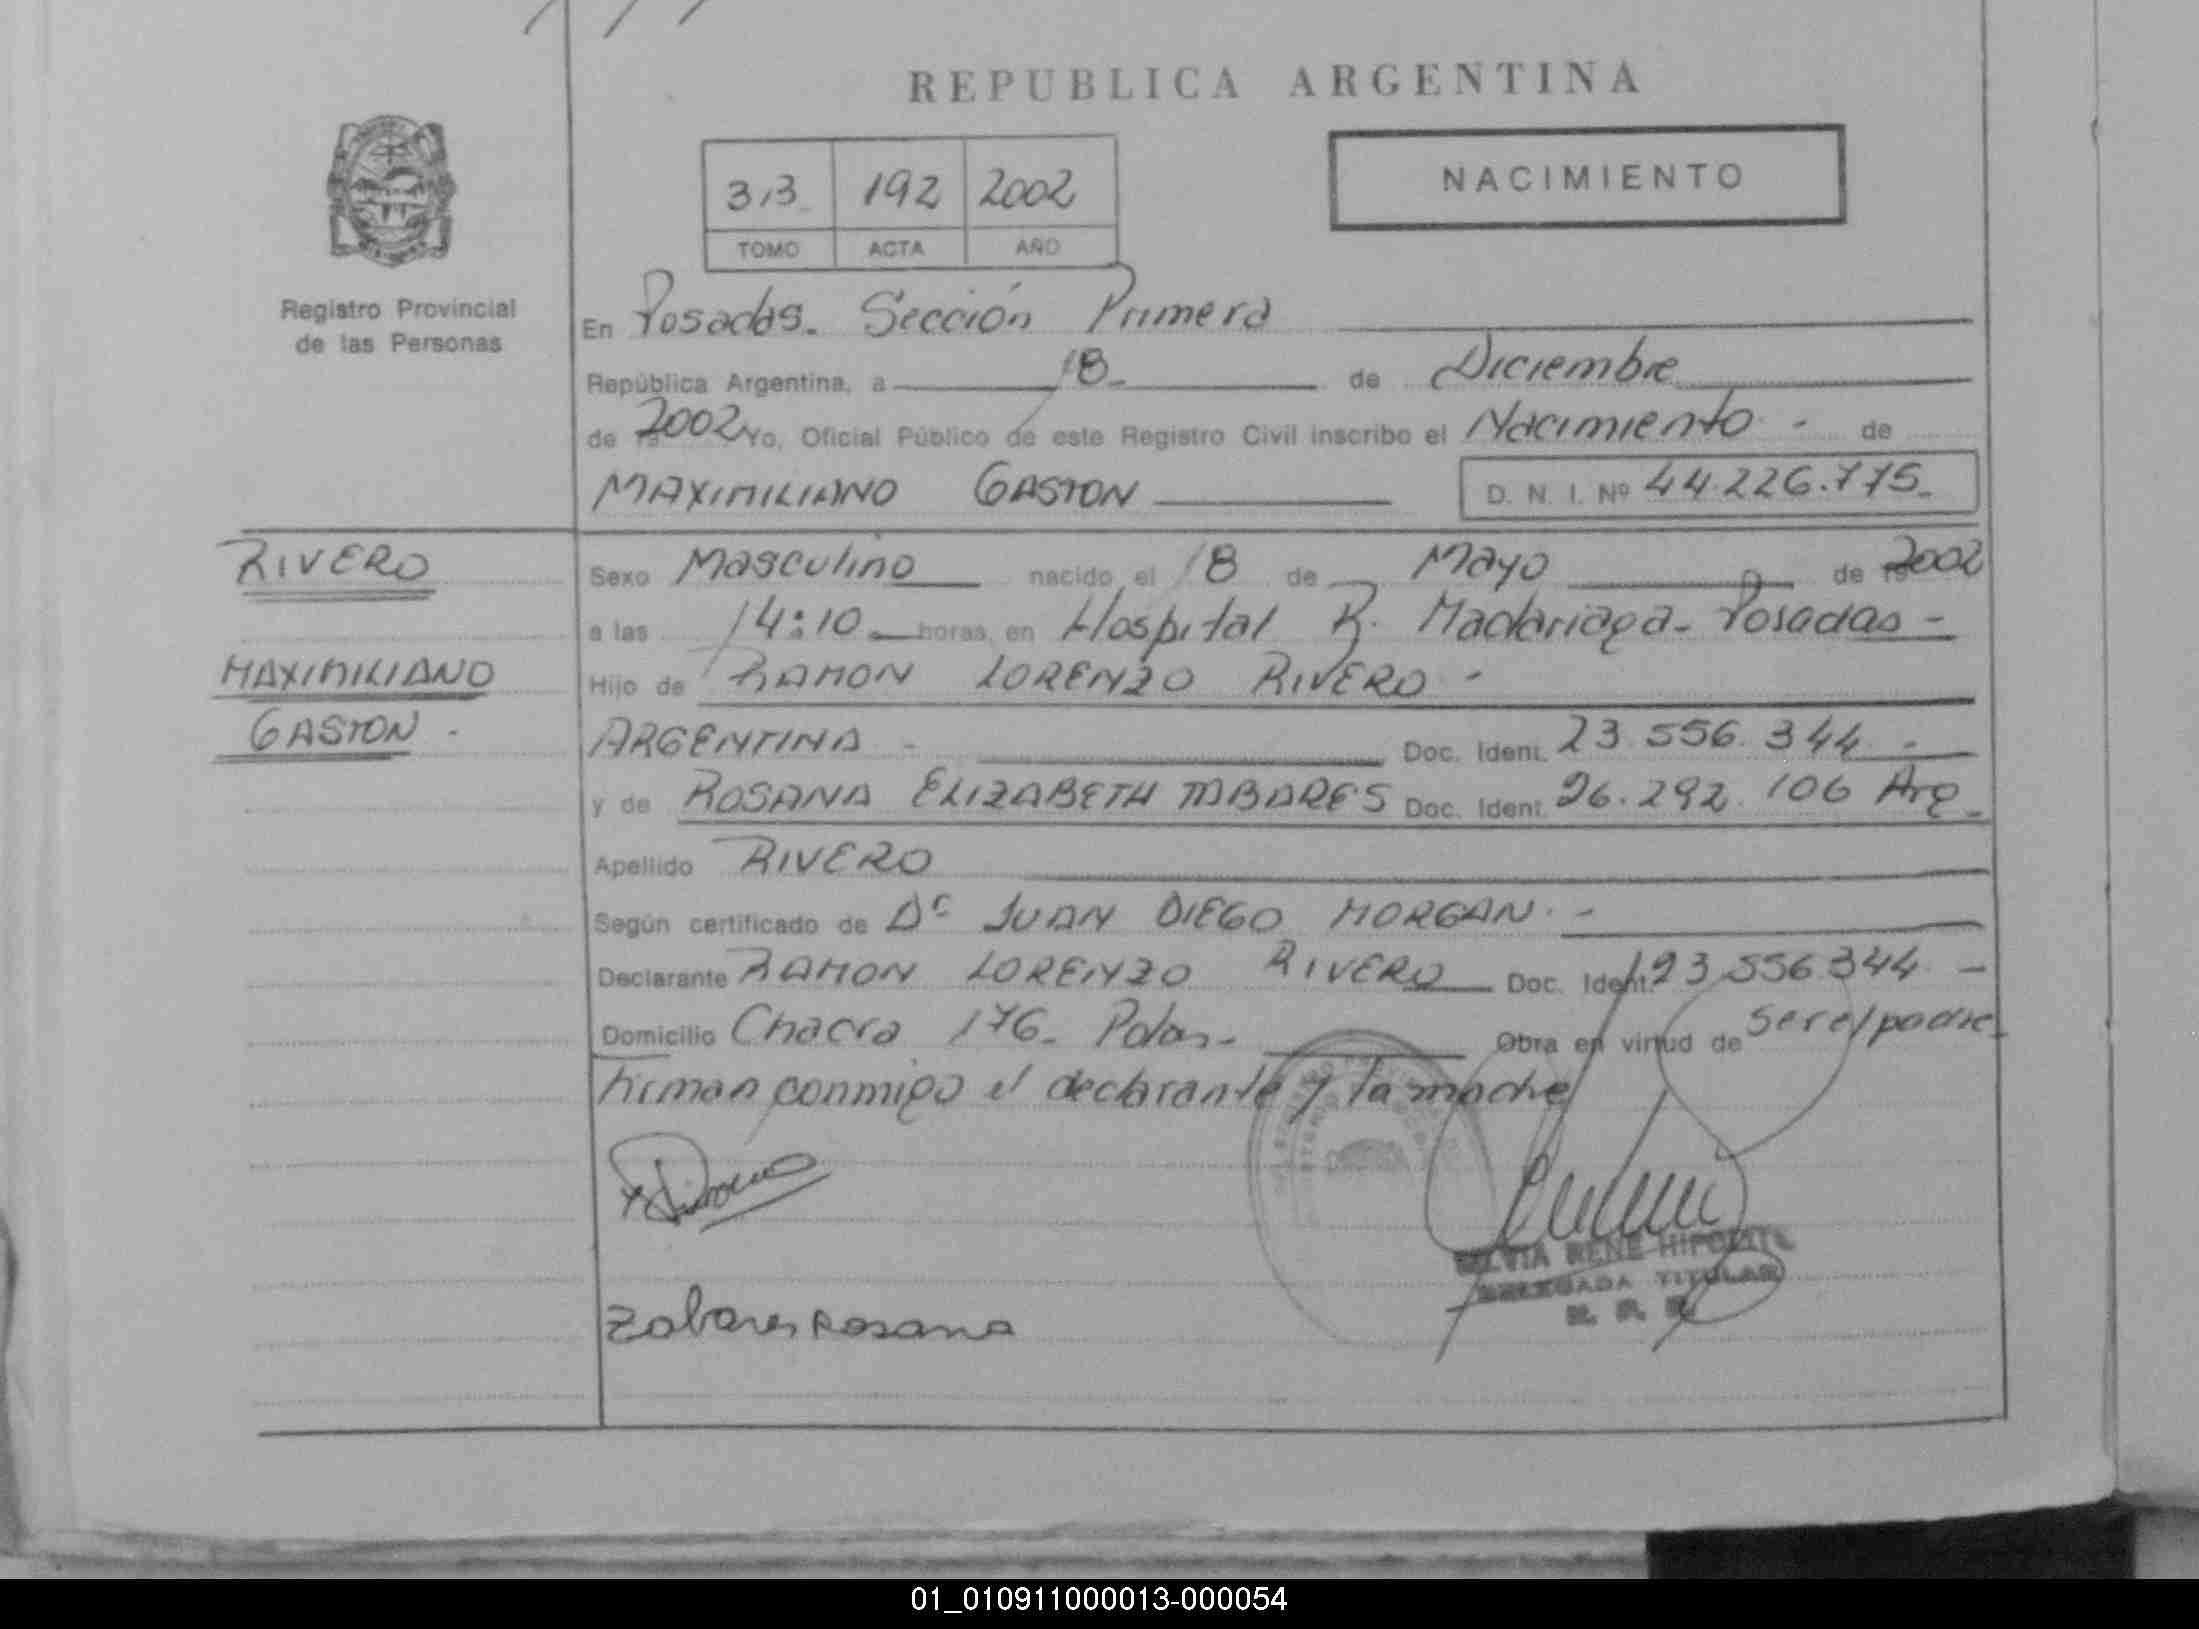 REPUBLICA ARGENTINA
3/3 192 2002
TOMO ACTA AÑO
NACIMIENTO
Registro Provincial
de las Personas
En Posadas. Sección Primera
República Argentina, a 18 de Diciembre
de 2002 Yo, Oficial Público de este Registro Civil inscribo el Nacimiento - de
MAXIMILIANO GASTON D. N. I. Nº 44.226.775
RIVERO
MAXIMILIANO
GASTON
Sexo Masculino nacido el 18 de Mayo de 2002
a las 14:10 horas, en Hospital R. Madariaga - Posadas -
Hijo de RAMON LORENZO RIVERO -
ARGENTINA - Doc. Ident. 23.556.344 -
y de ROSANA ELIZABETH TABARES Doc. Ident. 26.292.106 Arg
Apellido RIVERO
Según certificado de Dr JUAN DIEGO MORGAN -
Declarante RAMON LORENZO RIVERO Doc. Ident. 23.556.344 -
Domicilio Chacra 176 - Pdas - Obra en virtud de Ser el padre
Firman conmigo el declarante y la madre
Rosana
SILVIA RENE HIPOLITO
DELEGADA TITULAR
01_010911000013-000054